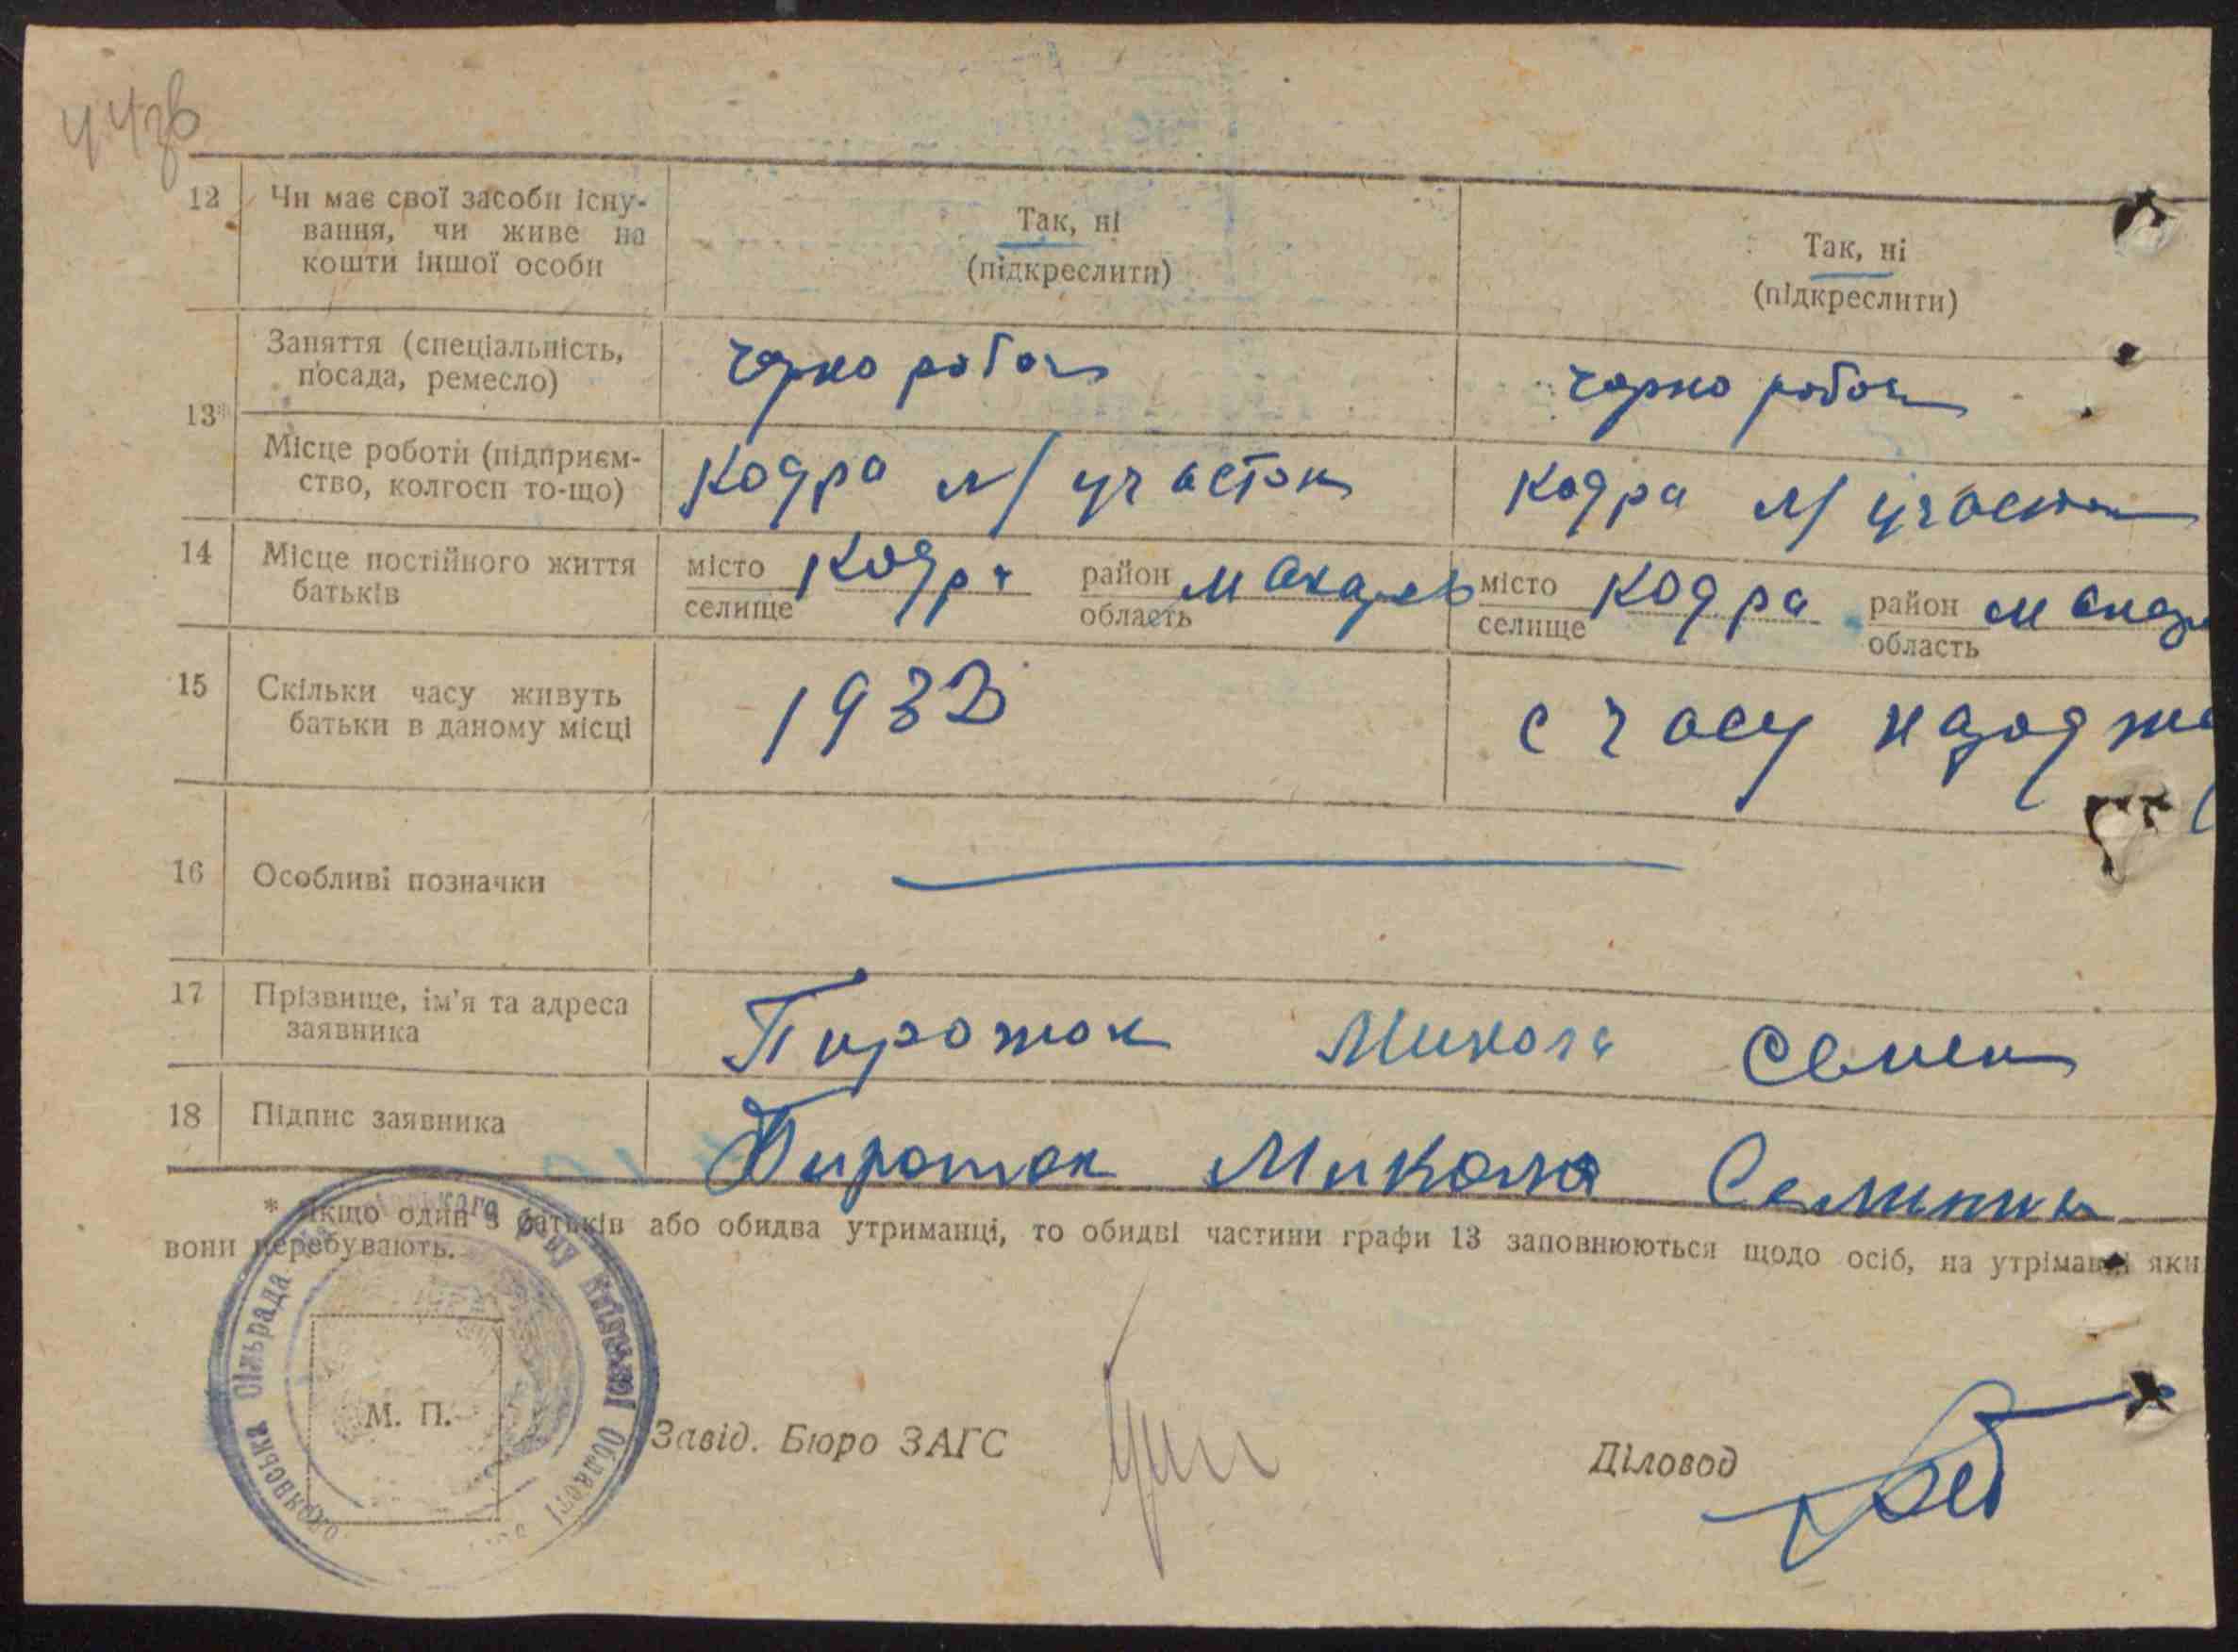 44зв
12 Чи має свої засоби існу-
вання, чи живе на
кошти іншої особи
Так, ні
(підкреслити)
Так, ні
(підкреслити)
13*
Заняття (спеціальність,
посада, ремесло)
чорно робоч
чорно робоч
Місце роботи (підприєм-
ство, колгосп то-що)
Кодра л/участок
Кодра л/участок
14 Місце постійного життя
батьків
місто
селище
Кодра
район
область
Макарів
місто
селище
Кодра
район
область
Макар
15 Скільки часу живуть
батьки в даному місці
1933
с часу народже
16 Особливі позначки
17 Прізвище, ім'я та адреса
заявника
Пирожок Микола Семен
18 Підпис заявника
Пирожок Микола
* Якщо один з батьків або обидва утриманці, то обидві частини графи 13 заповнюються щодо осіб, на утріманні яки
вони перебувають.
Сільрада Київської Області
М. П.
Завід. Бюро ЗАГС
Діловод